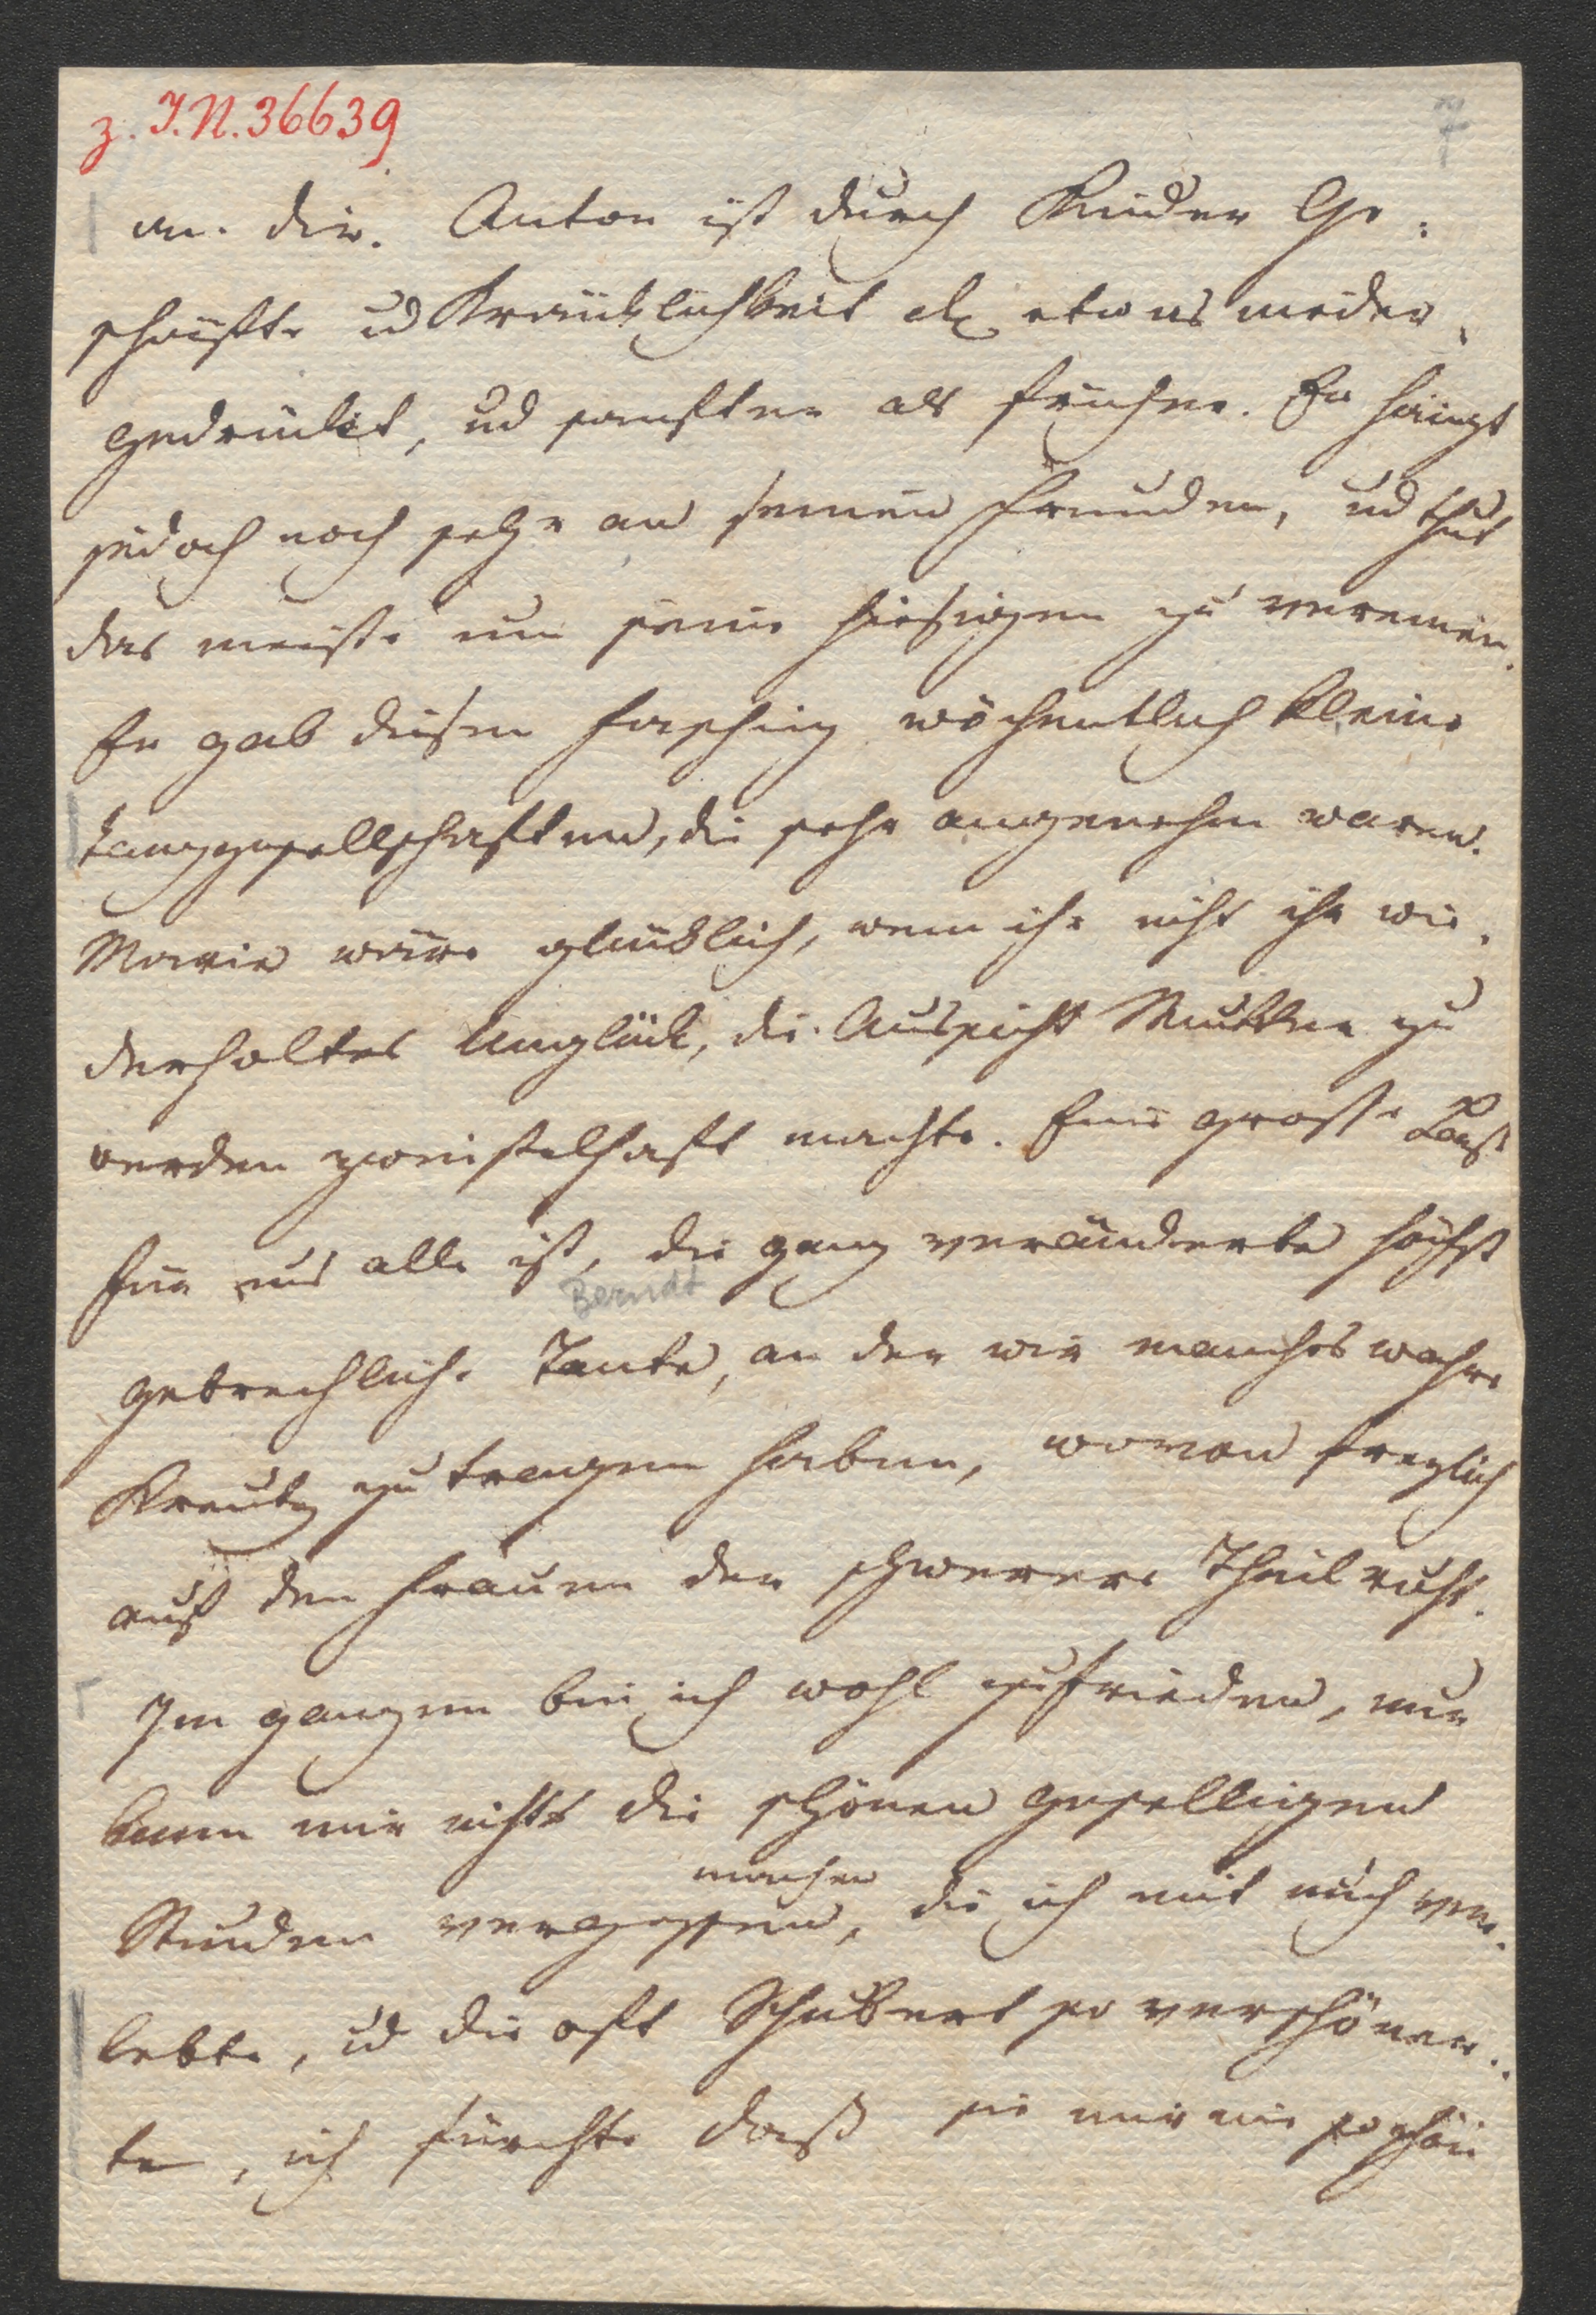 z. I.N. 36639
7
an dir. Anton ist durch Kinder Ge:
schäfte ud Kränklichkeit etwas nieder,
gedrückt, ud sanfter als früher. Er hängt
jedoch noch sehr an seinen Freunden, ud thut
das meiste um seine hiesigen zu vereinen.
Er gab diesen Fasching wöchentlich kleine
Tanzgesellschaften, die sehr angenehm waren.
Marie wäre glücklich, wenn ihr nicht ihr wie,
derholtes Unglück, die Aussicht Mutter zu
werden zweifelhaft machte. Eine grosse Last
für uns alle ist, die ganz veränderte höchst
Berndt
gebrechliche Tante, an der wir manches wahre
Kreutz zu tragen haben, wovon freylich
auf den Frauen der schwerere Theil ruht.
Im ganzen bin ich wohl zufrieden, nur
kann mir nichts die schönen geselligen
machen
Stunden vergessen, die ich mit euch ver,
lebte, ud die oft Schubert so verschöner..
te, ich fürchte daß sie mir nie so schön